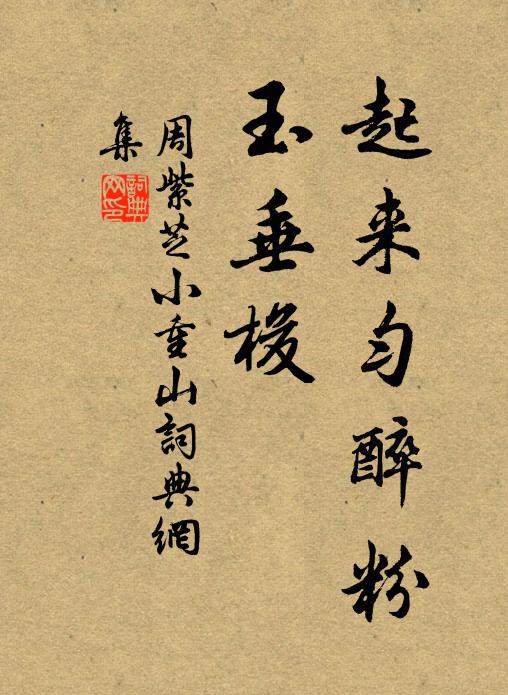 起来勻醉粉
玉垂梭
周紫芝小重山詞典網
集
詞典
网印